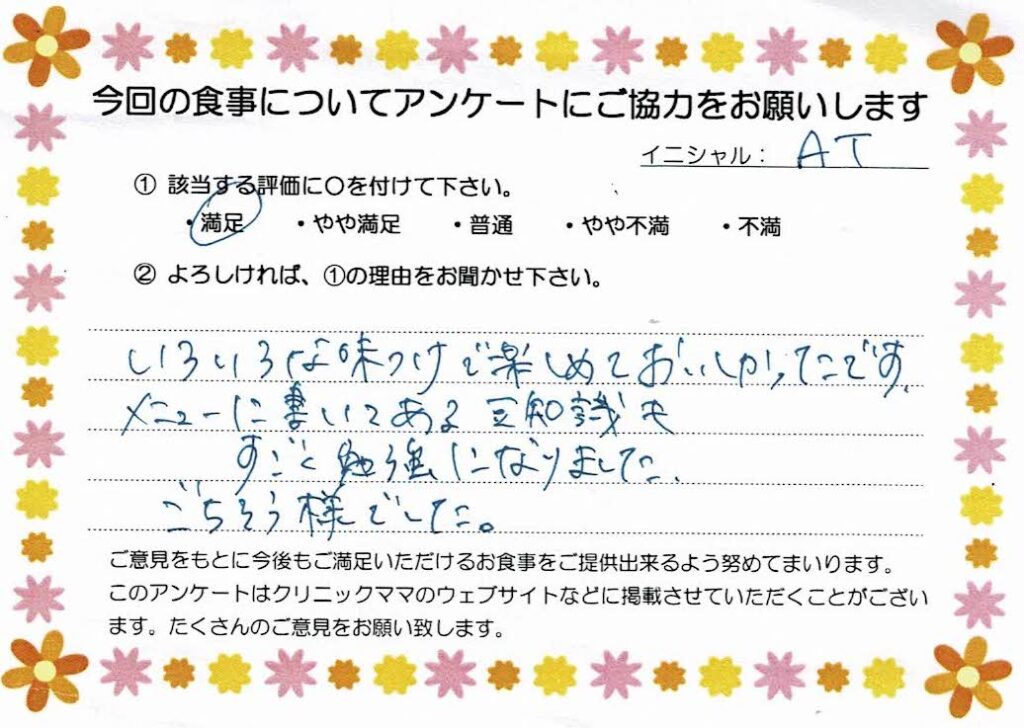 今回の食事についてアンケートにご協力をお願いします
イニシャル： AT
① 該当する評価に〇を付けて下さい。
・満足 ・やや満足 ・普通 ・やや不満 ・不満
② よろしければ、①の理由をお聞かせ下さい。
いろいろな味つけで楽しめておいしかったです。
メニューに書いてある豆知識も
すごく勉強になりました。
ごちそう様でした。
ご意見をもとに今後もご満足いただけるお食事をご提供出来るよう努めてまいります。
このアンケートはクリニックママのウェブサイトなどに掲載させていただくことがござい
ます。たくさんのご意見をお願い致します。